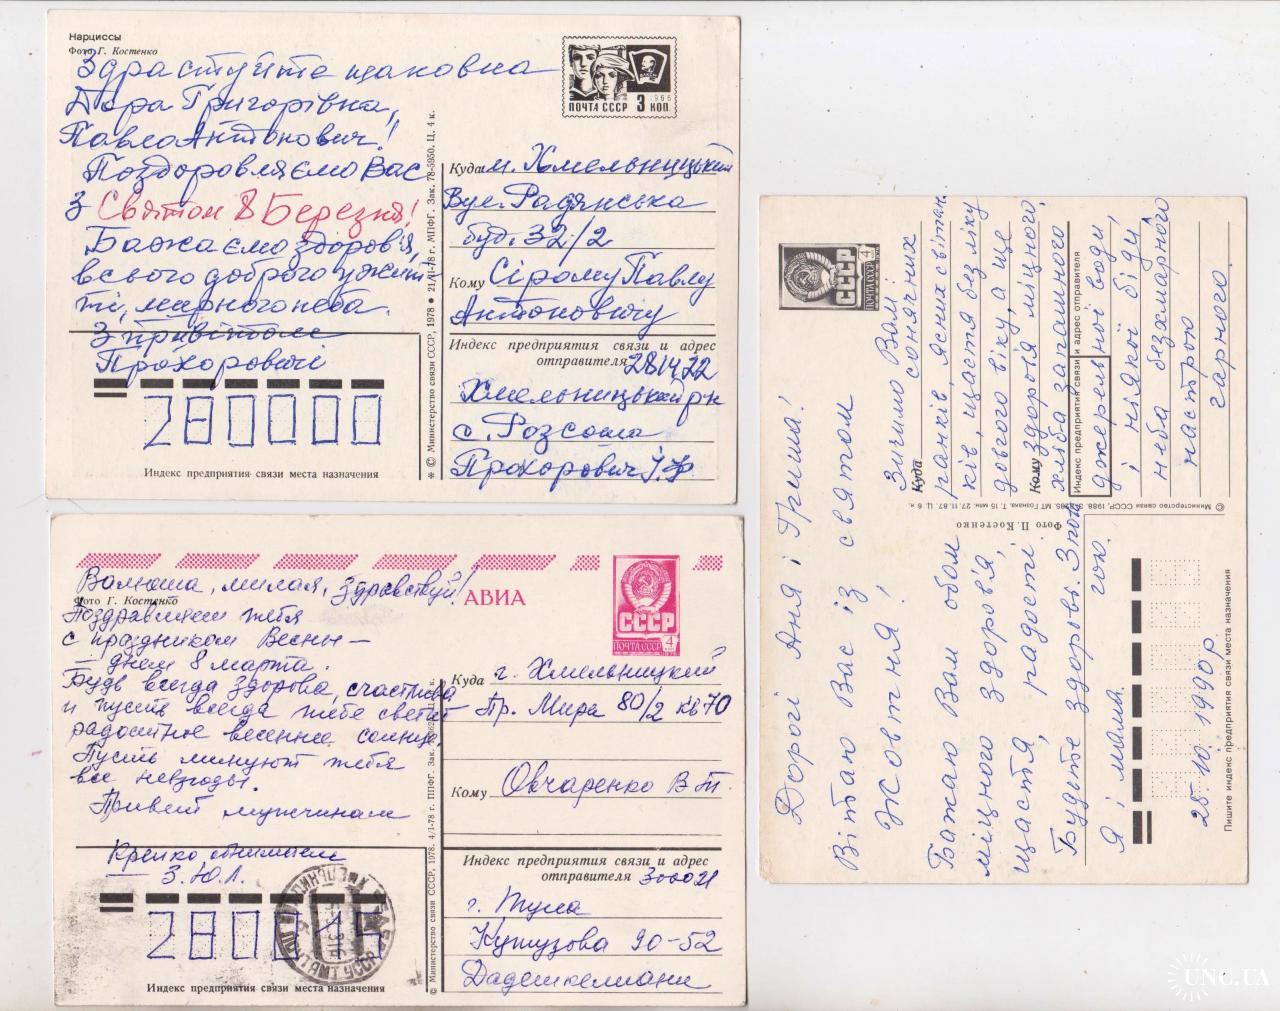 Нарциссы
Фото Г. Костенко
Здрастуйте шановна
Дора Григорівна,
Павло Антонович!
Поздоровляємо Вас
З Святом 8 Березня!
Бажаємо здоров'я,
всього доброго у жит-
ті, мирного неба.
З привітом
Прохоровичі
280000
Индекс предприятия связи места назначения
* © Министерство связи СССР, 1978 • 21/XI-78 г. МПФГ. Зак. 78-5950. Ц. 4 к.
ПОЧТА СССР 3 КОП.
1966
Куда м. Хмельницький
Вул. Радянська
буд. 32/2
Кому Сірому Павлу
Антоновичу
Индекс предприятия связи и адрес
отправителя 281422
Хмельницький рн
с. Розсоша
Прохорович І.Ф
Валюша, милая, здравствуй!
Фото Г. Костенко
Поздравляем тебя
с праздником Весны —
— днем 8 марта.
Будь всегда здорова, счастлива
и пусть всегда тебе светит
радостное весеннее солнце.
Пусть минуют тебя
все невзгоды.
Привет мужчинам
Крепко обнимаем
З.Ю.Л.
280015
Индекс предприятия связи места назначения
© Министерство связи СССР, 1978. 4/I-78 г. ППФГ. Зак.
АВИА
СССР
ПОЧТА СССР 4
Куда г. Хмельницкий
Пр. Мира 80/2 кв 70
Кому Овчаренко В.Т.
Индекс предприятия связи и адрес
отправителя 300021
г. Тула
Кутузова 90-52
Дадешкелиани
Дорогі Аня і Гриша!
Вітаю Вас із святом
Жовтня!
Бажаю Вам обом
міцного здоров'я,
щастя, радості.
Будьте здорові. З пов
Я і мама.
гою.
25.10.1990р.
Пишите индекс предприятия связи места назначения
Фото П. Костенко
© Министерство связи СССР, 1988. МТ Гознака. Т. 15 млн. 27.11.87. Ц. 6 к.
СССР
ПОЧТА СССР 4
Зичимо Вам
Куда
сонячних
ранків, ясних світан
ків, щастя без ліку
довгого віку, а ще
Кому здоров'я міцного,
хліба запашного
Индекс предприятия связи и адрес отправителя
джерельної води
і ніякої біди,
неба безхмарного
настрою
гарного.
UNC.UA